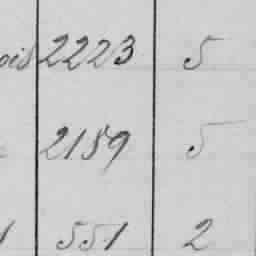 ois 2223 5
2189 5
551 2